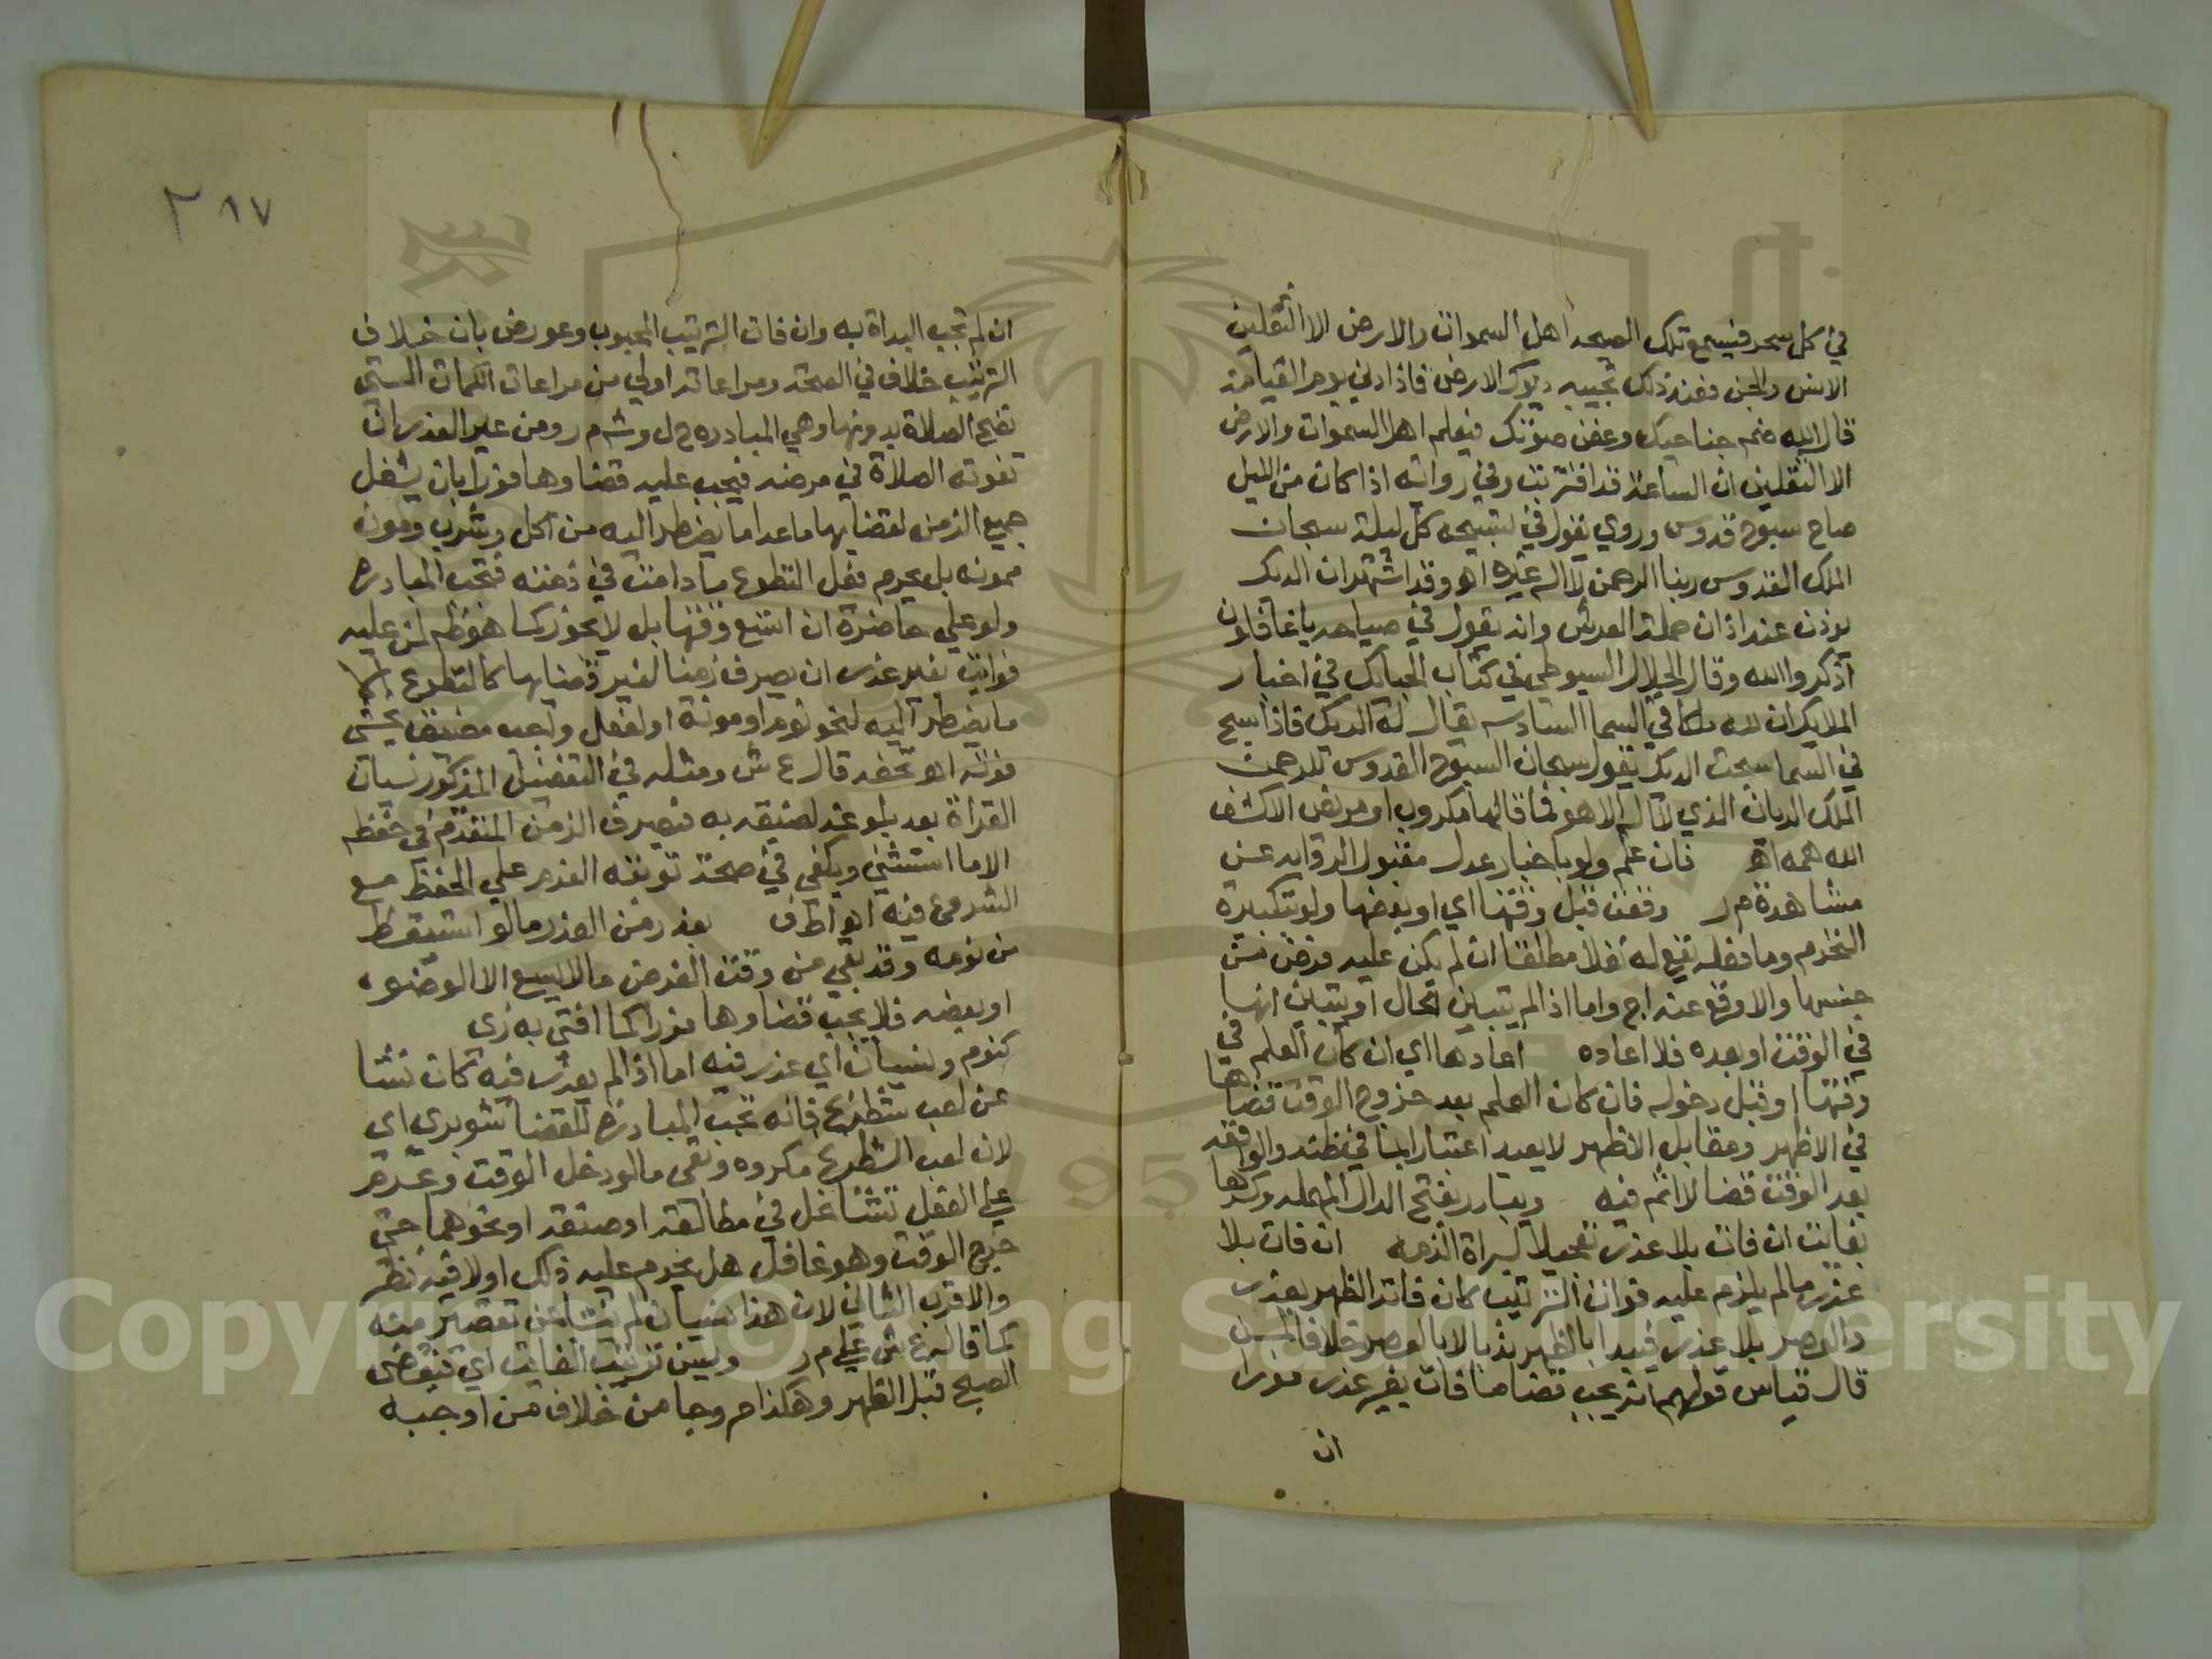 في كل سحر فيسمع تلك الصيحه اهل السموات والارض الا الثقلين
الانس والجن فعند ذلك تجيبه ديوك الارض فاذا دني يوم القيامة
قال الله ضم جناحيك وغض صوتك فيعلم اهل السموات والارض
الا الثقلين ان الساعة قد اقتربت وفي رواية اذا كان من الليل
صاح سبوح قدوس وروي يقول في تسبيحه كل ليلة سبحان
الملك القدوس ربنا الرحمن لا اله غيره اه وقد اشتهر ان الديك
يوذن عند اذان حملة العرش وانه يقول في صياحه يا غافلون
اذكروا الله وقال الجلال السيوطي في كتاب الحبائك في اخبار
الملايك ان لله ملكا في السما السادسه يقال له الديك فاذا سبح
في السما سبحت الديك يقول سبحان السبوح القدوس الرحمن
الملك الديان الذي لا اله الا هو فما قالها مكروب او مريض الا كشف
الله همه اه فان علم ولو باخبار عدل مقبول الرواية عن
مشاهدة م ر وقعت قبل وقتها اي او بعضها ولو تكبيرة
التحرم وما فعله يقع له نفلا مطلقا ان لم يكن عليه فرض من
جنسها والا وقع عنه ا ج واما اذا لم يتبين الحال او يتبين انها
في الوقت او بعده فلا اعاده اعادها اي ان كان العلم في
وقتها او قبل دخوله فان كان العلم بعد خروج الوقت قضاها
في الاظهر ومقابل الاظهر لا يعيد اعتبارا بما في ظنه والواقعة
بعد الوقت قضا لا اثم فيه ويبادر بفتح الدال المهمله وكسرها
بفايت ان فات بلا عذر تعجيلا لبراة الذمه ان فات بلا
عذر ما لم يلزم عليه فوات الترتيب كان فاته الظهر بعذر
والعصر بلا عذر فيبدا بالظهر ندبا لا بالعصر خلافا لمن
قال قياس قولهم انه يجب قضا ما فات بغير عذر فورا
ان
٢٨٧
ان لم تجب البداة به وان فات الترتيب المحبوب وعورض بان خلاف
الترتيب خلاف في الصحة ومراعاته اولي من مراعات الكمات التي
تصح الصلاة بدونها وهي المبادره ح ل وش م ر ومن غير العذر ان
تفوته الصلاة في مرضه فيجب عليه قضاوها فورا بان يشغل
جميع الزمن لقضايها ما عدا ما يضطر اليه من اكل وشرب ومونة
ممونه بل يحرم فعل التطوع ما دامت في ذمته فتجب المبادره
ولو علي حاضرة ان اتسع وقتها بل لا يجوز كما هو ظاهر لمن عليه
فوايت بغير عذر ان يصرف زمنا لغير قضايها كالتطوع الا
ما يضطر اليه لنحو نوم او مونة او لفعل واجب مضيق يخشي
فوته اه تحفه قال ع ش ومثله في التفضيل المذكور نسيان
القراة بعد بلوغه لضيقه به فيصرف الزمن المتقدم في حفظه
الا ما استثني ويكفي في صحة توبته العزم علي الحفظ مع
الشروع فيه اه اط ف بعذر من العذر ما لو استيقظ
من نومه وقد بقي من وقت الفرض ما لا يسع الا الوضوء
او بعضه فلا يجب قضاوها فورا كما افتي به زي
كنوم ونسيان اي عذر فيه اما اذا لم يعذر فيه كان نشا
عن لعب شطرنج فانه تجب المبادرة للقضا شوبري اي
لان لعب الشطرنج مكروه وبقي ما لو دخل الوقت وعزم
علي الفعل تشاغل في مطالعة او صنعة او نحوهما حتي
خرج الوقت وهو غافل هل يحرم عليه ذلك اولا فيه نظر
والاقرب الثاني لان هذا نسيان لم ينشا عن تقصير منه
كما قاله ع ش علي م ر ويسن ترتيب الفايت اي فيقضي
الصبح قبل الظهر وهكذا م ر وجا من خلاف من اوجبه
Copyright © King Saud University